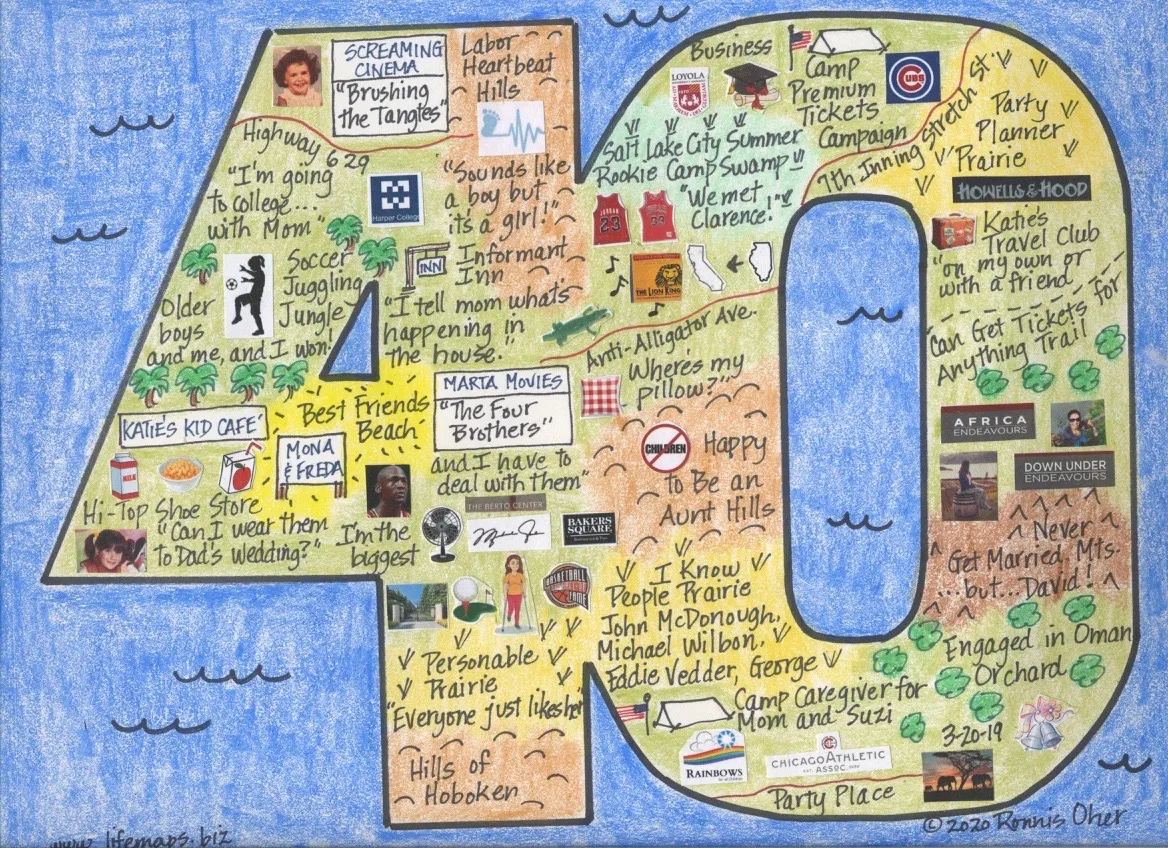 SCREAMING
CINEMA
"Brushing
the Tangles"
Labor
Heartbeat
Hills
Highway 629
"I'm going
to college...
with Mom"
Harper College
"Sounds like
a boy but
it's a girl!"
Older
boys
and me, and I won!
Soccer
Juggling
Jungle
INN
Informant
Inn
"I tell mom what's
happening in
the house."
KATIE'S KID CAFE'
MILK
Best Friends
Beach
MONA
& FREDA
MARTA MOVIES
"The Four
Brothers"
and I have to
deal with them"
Hi-Top Shoe Store
"Can I wear them
to Dad's Wedding?"
I'm the
biggest
THE BERTO CENTER
BAKERS
SQUARE
BASKETBALL
HALL OF
FAME
Personable
Prairie
"Everyone just likes her"
Hills of
Hoboken
Business
LOYOLA
Camp
Premium
Tickets
Campaign
CUBS
7th Inning Stretch St.
Party
Planner
Prairie
HOWELLS & HOOD
Salt Lake City Summer
Rookie Camp Swamp
"We met
Clarence!"
JORDAN
23
33
THE LION KING
Anti-Alligator Ave.
Where's my
pillow?"
CHILDREN
Happy
to Be an
Aunt Hills
Katie's
Travel Club
"on my own or
with a friend
Can Get Tickets for
Anything Trail
AFRICA
ENDEAVOURS
DOWN UNDER
ENDEAVOURS
Never
Get Married, Mts.
...but...David!
Engaged in Oman
Orchard
3-20-19
I Know
People Prairie
John McDonough,
Michael Wilbon,
Eddie Vedder, George
Camp Caregiver for
Mom and Suzi
RAINBOWS
CHICAGO ATHLETIC
EST. ASSOC. 1890
Party Place
www.lifemaps.biz
© 2020 Ronnis Oher